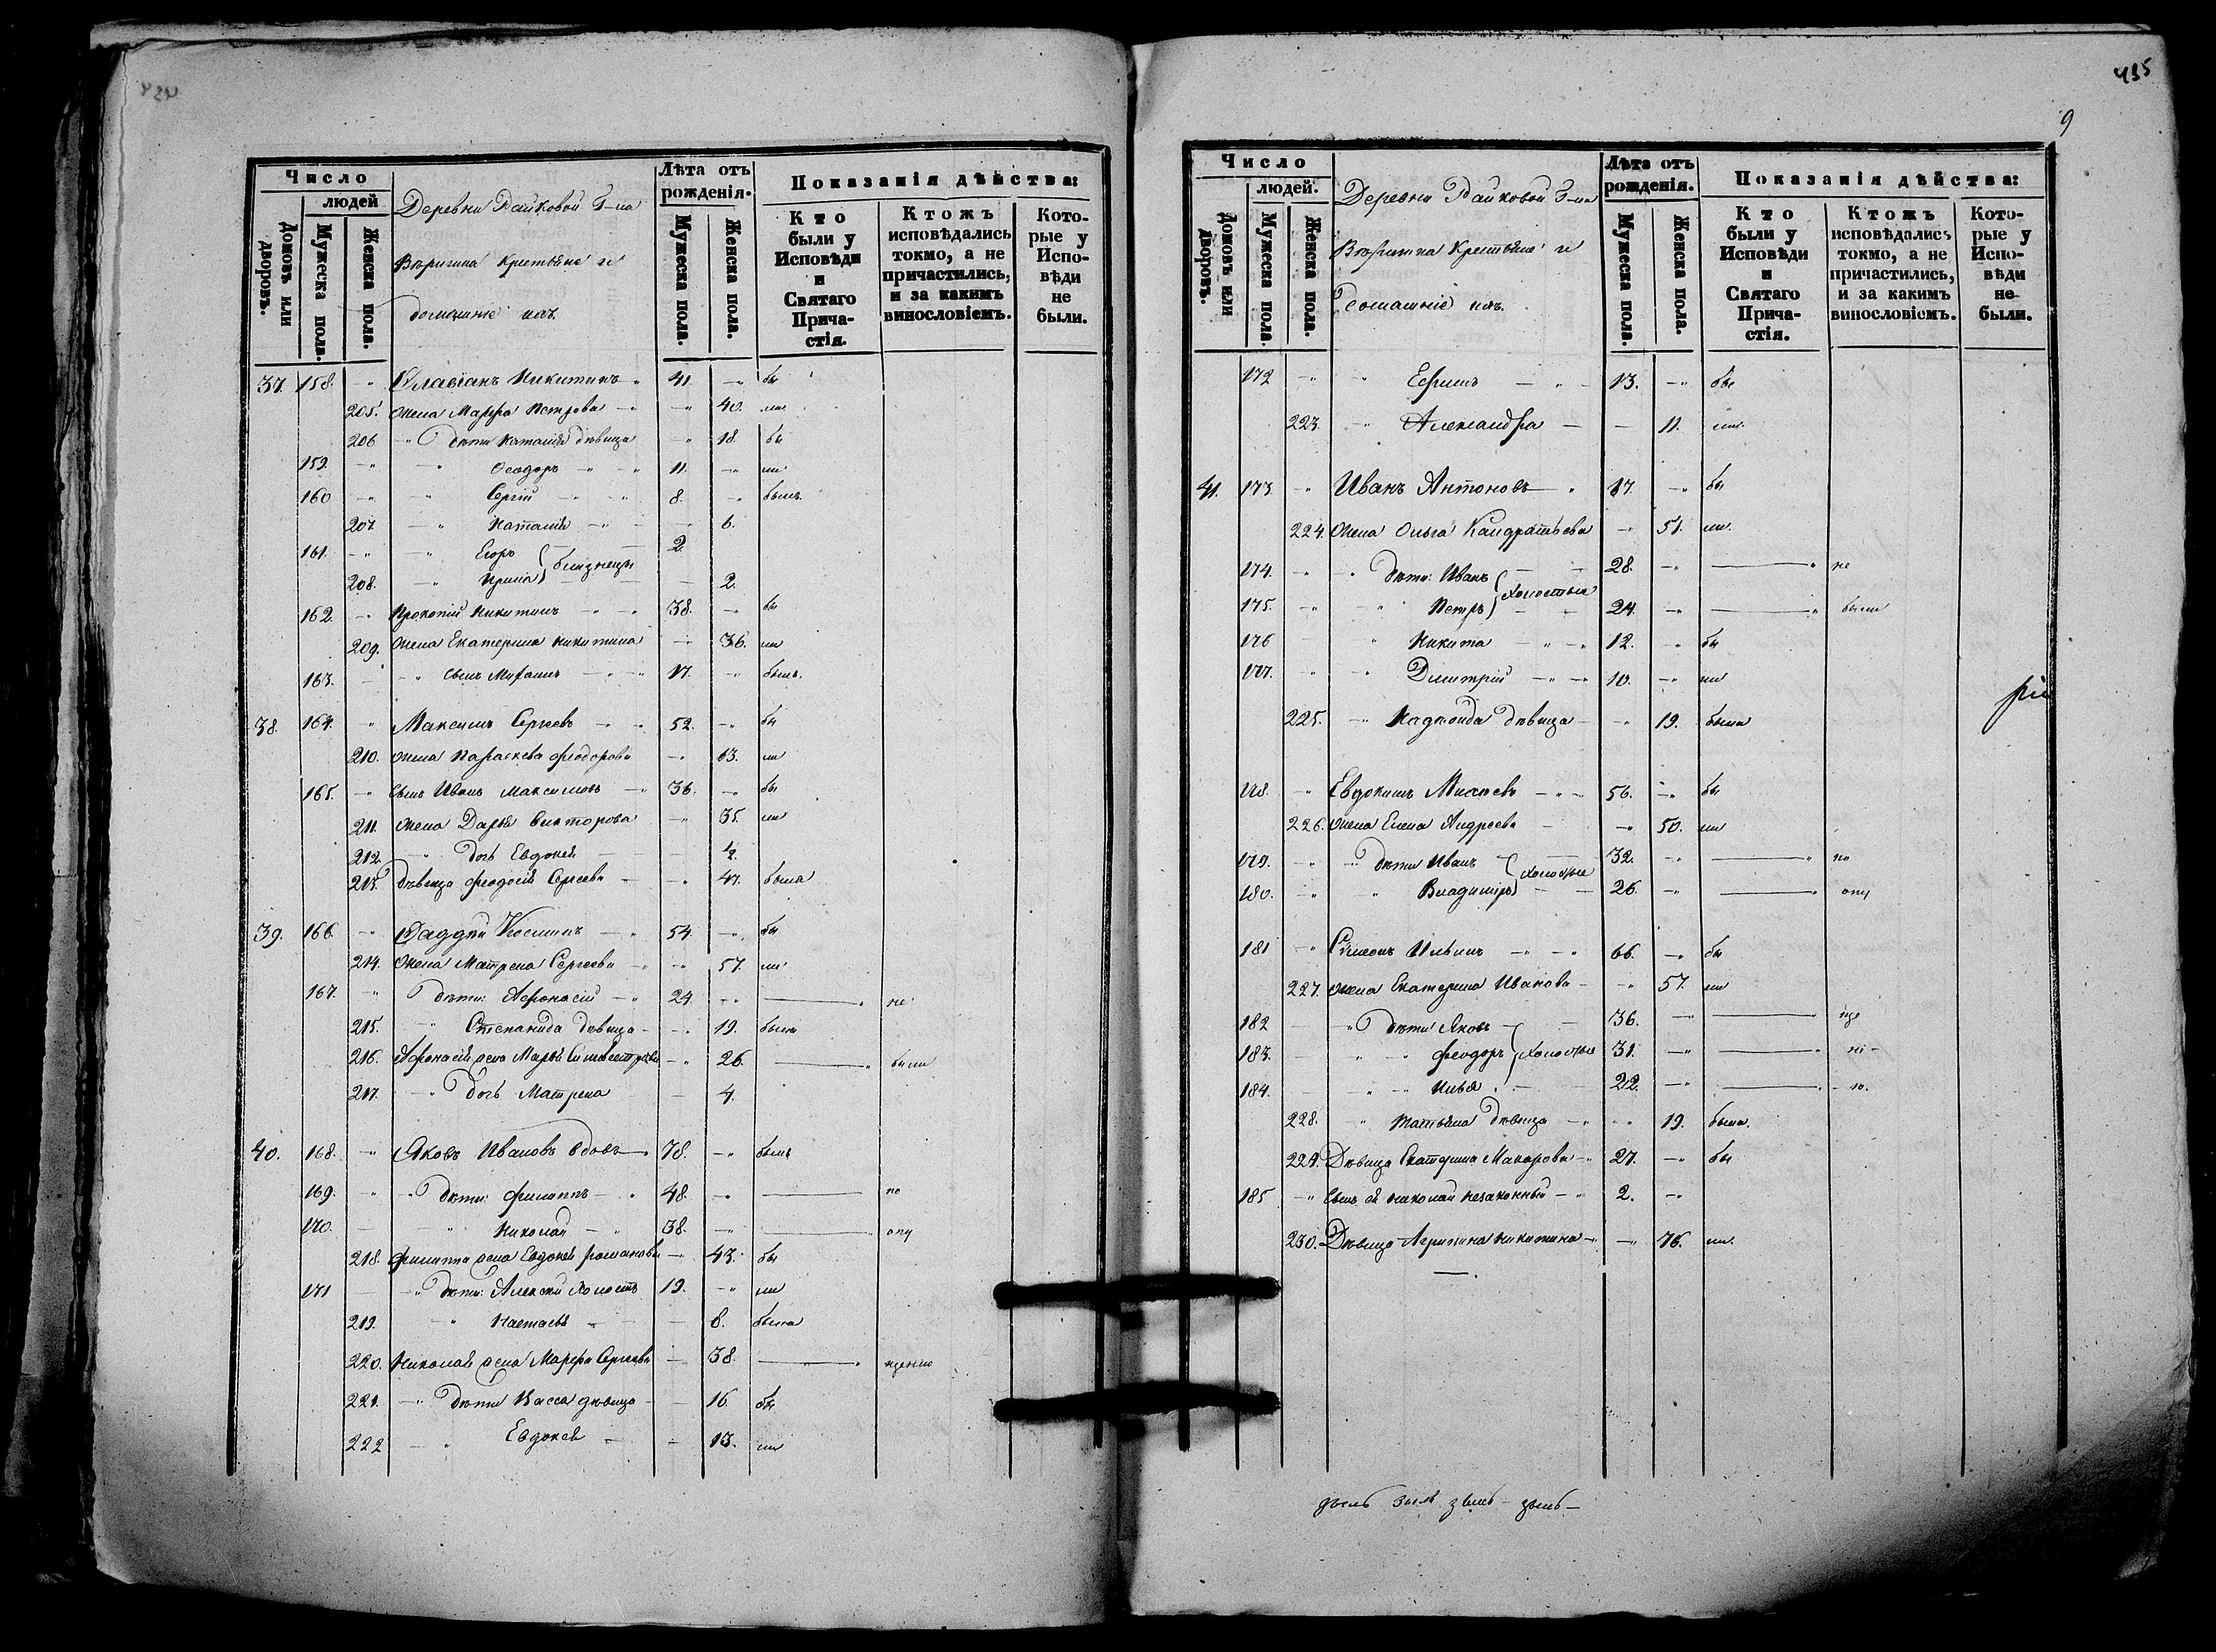 435
9
Число
людей
Домовъ или дворовъ.
Мужеска пола.
Женска пола.
Деревни Райковой Г-на
крестьяне и
домашніе ихъ.
Лѣта отъ рожденія.
Мужеска пола.
Женска пола.
Показанія дѣйства:
Кто были у Исповѣди и Святаго Прича-стія.
Ктожъ исповѣдались токмо, а не причастились, и за какимъ винословіемъ.
Кото-рые у Испо-вѣди не были.
37. 158. Никитинъ 41. бы
205. Жена Марфа Петрова 40. ли
206 дѣти Наталія дѣвица 18. бы
159. Ѳеодоръ 11. ли
160 Сергій 8. былъ
207 Наталія 6.
161. Егоръ близнецы 2.
208. Ирина 2.
162. Прокопій Никитинъ 38. бы
209. Жена Екатерина Никитина 36. ли
163. сынъ 17. былъ.
38. 164. Максимъ Сергеевъ 52. бы
210. жена Параскева Феодорова 63. ли
165. сынъ Иванъ Максимовъ 36. бы
211. жена Дарья Викторова 35. ли
212. дочь Евдокея ½.
213. дѣвица Феодосія Сергеева 47. была
39. 166. Фаддей Косминъ 54. бы
214. Жена Матрена Сергеева 57. ли
167. дѣти: Афонасій 24 не
215. Степанида дѣвица 19. была
216. Афонасія жена Марья Сильвестрова 26. были
217. дочь Матрена 4.
40. 168. Яковъ Ивановъ вдовъ 78. былъ
169. дѣти: Филиппъ 48. по
170. Николай 38. опу
218. Филиппа жена Евдокея Романова 43. бы
171 дѣти: Алексѣй холостъ 19. ли
219. Настасья 8. была
220. Николая жена Марфа Сергеева 38. щенію
221. дѣти Васса дѣвица 16. бы
222 Евдокея 13. ли
Число
людей.
Домовъ или дворовъ.
Мужеска пола.
Женска пола.
Деревни Райковой Г-на
крестьяне и
Домашніе ихъ.
Лѣта отъ рожденія.
Мужеска пола.
Женска пола.
Показанія дѣйства:
Кто были у Исповѣди и Святаго Прича-стія.
Ктожъ исповѣдались токмо, а не причастились, и за какимъ винословіемъ.
Кото-рые у Испо-вѣди не были.
172 Ефимъ 13. бы
223. Александра 11. ли.
41. 173. Иванъ Антоновъ бы
224. Жена Ольга Кандратьева 51. ли.
174. дѣти: Иванъ холостые 28. не
175. Петръ 24. были
176 Никита 12. бы
177. Димитрій 10. ли
225. дѣвица 19. была
178. Евдокимъ 56. бы
226. Жена Елена Андреева 50. ли
179. дѣти Иванъ холостые 32. по
180. Владиміръ 26. опу
181 Симеонъ Ильинъ 66. бы
227. жена Екатерина Иванова 57. ли
182 дѣти Яковъ 36. ще
183. Феодоръ холостые 31. ні-
184. Илья 22. ю.
228. Татьяна дѣвица 19. была.
229. Дѣвица Екатерина Макарова 27. бы
185 сынъ ея Николай незаконный 2.
230. Дѣвица Агрипина Никитина 76. ли.